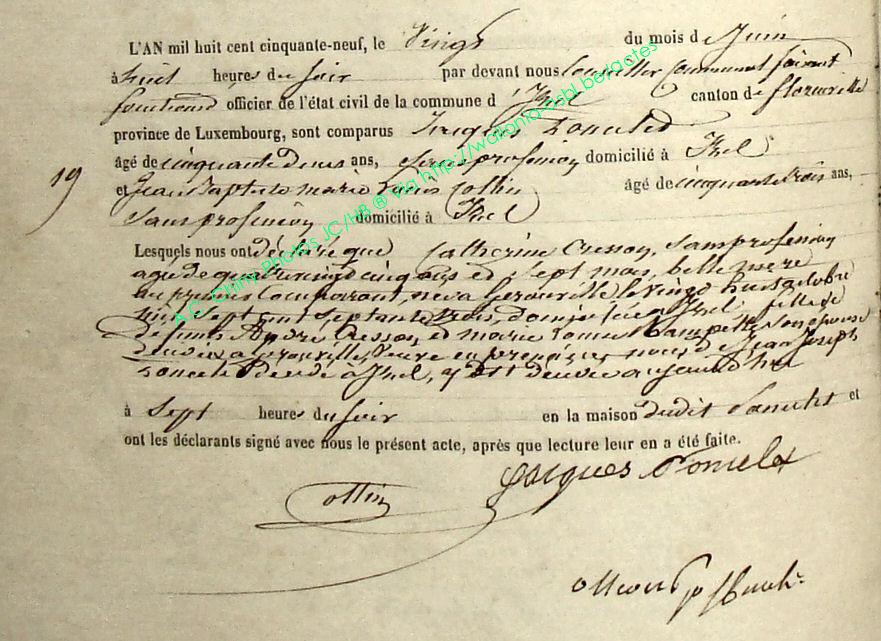 L'AN mil huit cent cinquante-neuf, le Vingt du mois de Juin
à huit heures du soir par devant nous Conseiller Communal faisant
fonctions officier de l'état civil de la commune d'Izel canton de florenville
province de Luxembourg, sont comparus Jacques
âgé de cinquante deux ans, sans profession domicilié à Izel
19 et Jean Baptiste marie Louis Collin âgé de cinquante trois ans,
Sans profession domicilié à Izel
Lesquels nous ont déclaré que Catherine Cresson, Sans profession
agée de quatre vingt cinq ans et sept mois, belle mere
au premier Comparant, née a Gerouville le vingt huit octobre
mil sept cent septante trois, domiciliée a Izel fille de
Défunts André Cresson et marie Son épouse
décédés a Gerouville, Veuve en premières noces de Jean Joseph
décédé à Izel, est décédée aujourd'hui
à Sept heures du soir en la maison dudit et
ont les déclarants signé avec nous le présent acte, après que lecture leur en a été faite.
Jacques
Collin
A.C. Chiny Photos JC/HB ® via http://wallonia-asbl.be/actes